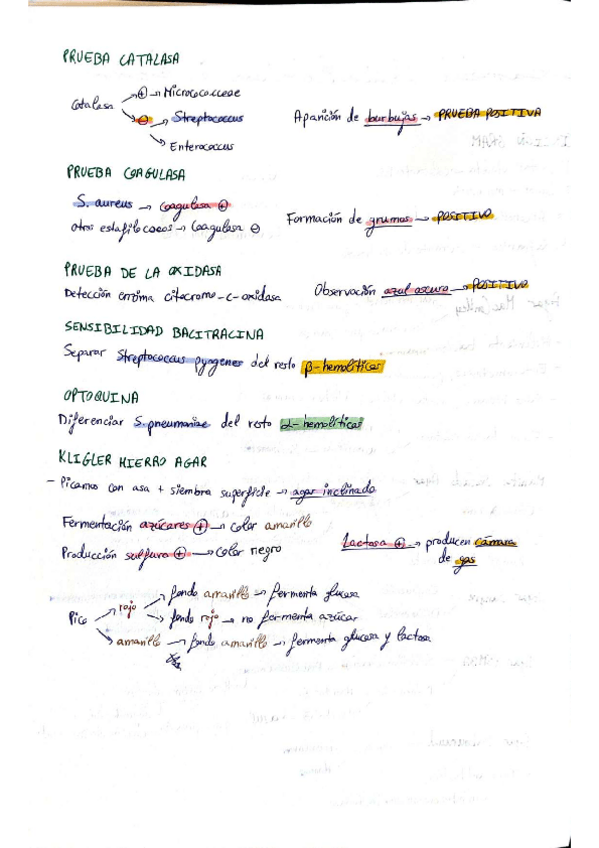 PRUEBA CATALASA
Catalasa → ⊕ → Micrococcaceae
⊖ → Streptococcus
→ Enterococcus
Aparición de burbujas → PRUEBA POSITIVA
PRUEBA COAGULASA
S. aureus → Coagulasa ⊕
otros estafilococos → Coagulasa ⊖
Formación de grumos → POSITIVO
PRUEBA DE LA OXIDASA
Detección enzima citocromo-c-oxidasa
Observación azul oscuro → POSITIVO
SENSIBILIDAD BACITRACINA
Separar Streptococcus pyogenes del resto β-hemolíticos
OPTOQUINA
Diferenciar S. pneumoniae del resto α-hemolíticos
KLIGLER HIERRO AGAR
- Picamos con asa + siembra superficie → agar inclinado
Fermentación azúcares ⊕ → Color amarillo
Producción sulfuro ⊕ → Color negro
Lactosa ⊕ → producen cámara de gas
Pico → rojo → fondo amarillo → fermenta glucosa
→ fondo rojo → no fermenta azúcar
→ amarillo → fondo amarillo → fermenta glucosa y lactosa